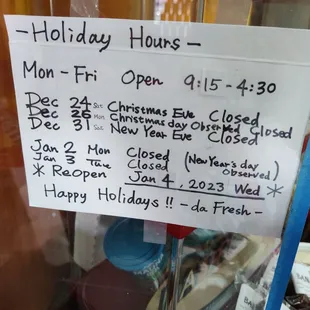 - Holiday Hours -
Mon - Fri Open 9:15 - 4:30
Dec 24 Sat Christmas Eve Closed
Dec 26 Mon Christmas day Observed Closed
Dec 31 Sat New Year Eve Closed
Jan 2 Mon Closed (New Year's day
Jan 3 Tue Closed Observed)
* ReOpen Jan 4, 2023 Wed *
Happy Holidays !! - da Fresh -